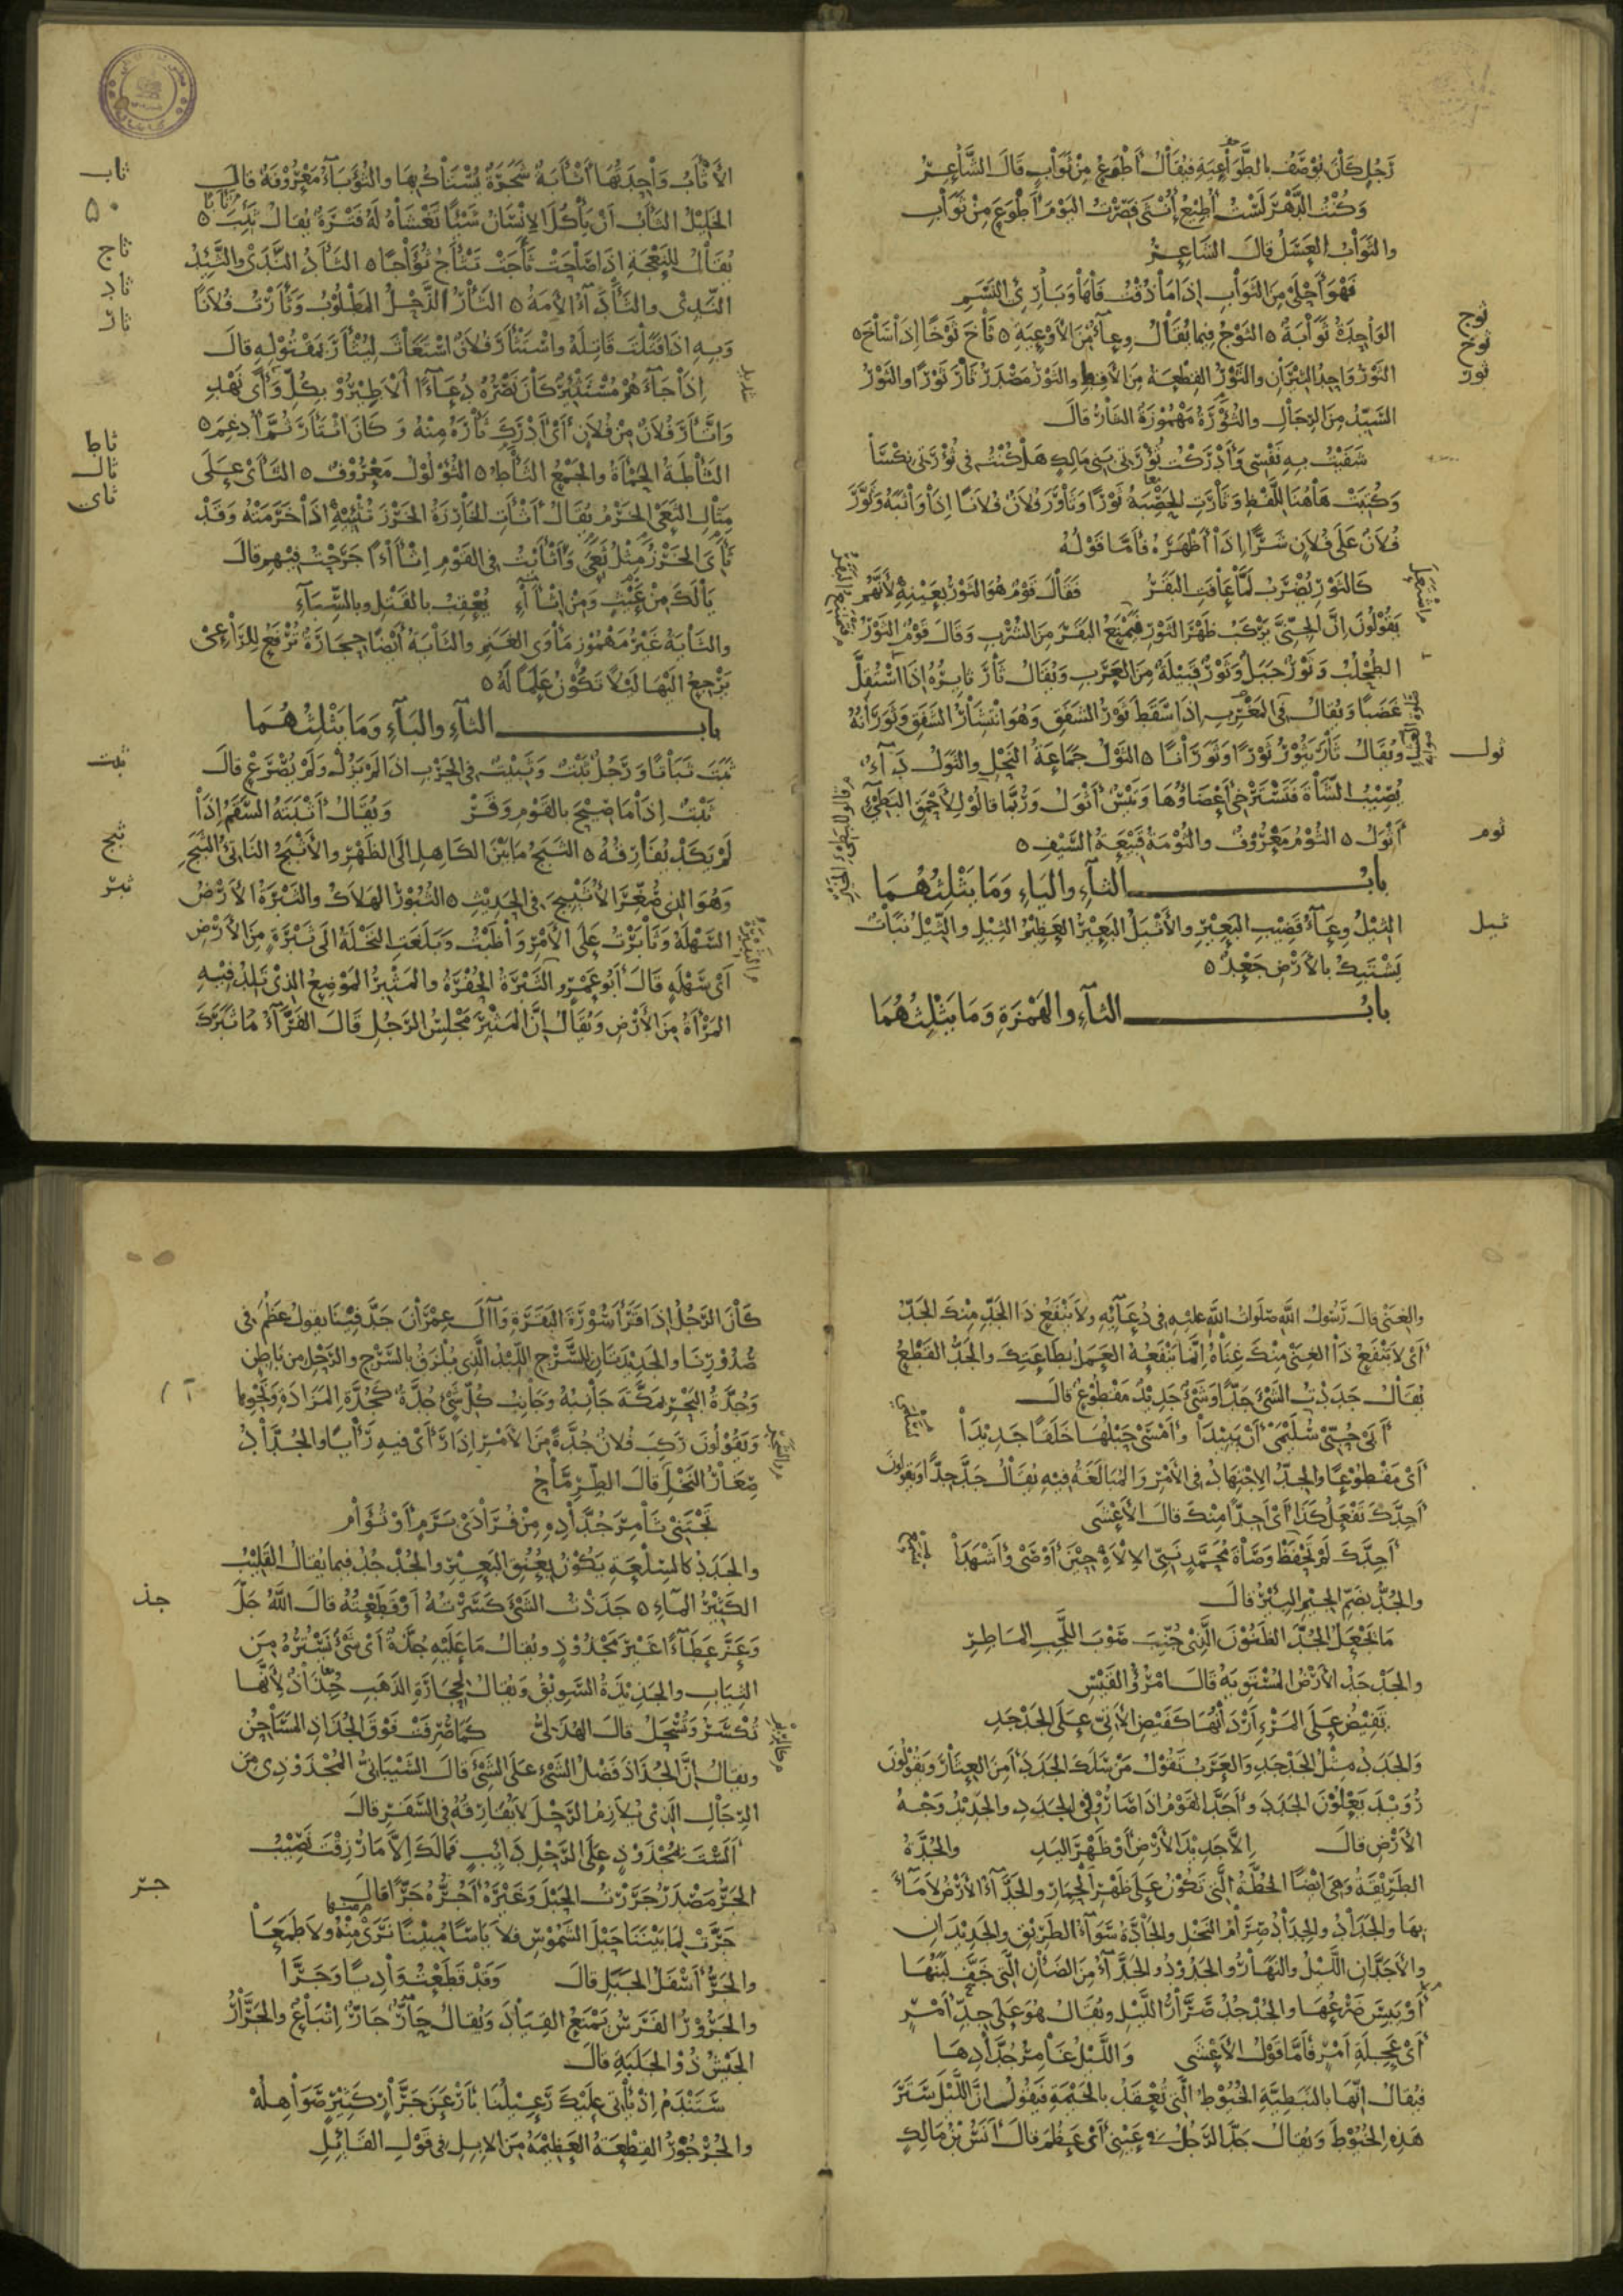 رَجُلٍ كَانَ يُوصَفُ بالطَّوَاعِيَةِ فيُقَالُ أَطْوَعُ مِنْ ثَوَابٍ قَالَ الشَّاعِرُ
وَكُنْتُ الدَّهْرَ لَسْتُ أُطِيعُ أُنْثَى فَصِرْتُ اليَوْمَ أَطْوَعَ مِنْ ثَوَابِ
والثَوَابُ العَسَلُ قالَ الشَاعِرُ
فَهْوَ أَحْلَى مِنَ الثَوَابِ إذَا مَا ذُقْتَ فَاهَا وَبَارِئِ النَسَمِ
الوَاحِدَةُ ثَوَابَةٌ ٥ الثَوْجُ فيما يُقَالُ وِعَآءٌ مِنَ الأَوْعِيَةِ ٥ ثَاخَ ثَوْخًا إذَا سَاخَ ٥
الثَوْرُ وَاحِدُ الثِيْرَانِ والثَوْرُ القِطْعَةُ مِنَ الأَقِطِ والثَوْرُ مَصْدَرُ ثَارَ ثَوْرًا والثَوْرُ
السَيِّدُ مِنَ الرِجَالِ والثُؤْرَةُ مَهْمُوزَةُ الثَارُ قالَ
شَفَيْتُ بِهِ نَفْسِي وَأَدْرَكْتُ ثُؤْرَتِي بَنِي مَالِكٍ هَلْ كُنْتُ فِي ثُؤْرَتِي نِكْسَا
وَكُتِبَتْ هَاهُنَا لِلَّفْظِ وَثَارَتِ الحَصْبَةُ ثَوْرًا وَثَاوَرَ فُلَانٌ فُلَانًا إذَا وَاثَبَهُ وَثَوَّرَ
فُلَانٌ عَلَى فُلَانٍ شَرًّا إذَا أَظْهَرَهُ فَأَمَّا قَوْلُهُ
كَالثَوْرِ يُضْرَبُ لَمَّا عَافَتِ البَقَرُ فَقَالَ قَوْمٌ هُوَ الثَوْرُ بِعَيْنِهِ لأَنَّهُمْ
يَقُولُونَ إنَّ الجِنِّيَّ يَرْكَبُ ظَهْرَ الثَوْرِ فَيَمْنَعُ البَقَرَ مِنَ الشُرْبِ وَقَالَ قَوْمٌ الثَوْرُ
الطُحْلُبُ وَثَوْرٌ جَبَلٌ وَثَوْرٌ قَبِيلَةٌ مِنَ العَرَبِ وَيُقَالُ ثَارَ ثَايِرُهُ إذَا اسْتَقَلَّ
غَضَبًا وَيُقَالُ فِي المَغْرِبِ إذَا سَقَطَ ثَوْرُ الشَفَقِ وَهُوَ انْتِشَارُ الشَفَقِ وَثَوَرَانُهُ
وَيُقَالُ ثَارَ يَثُورُ ثَوْرًا وَثَوَرَانًا ٥ الثَوْلُ جَمَاعَةُ النَحْلِ والثَوَلُ دَآءٌ
يُصِيبُ الشَاةَ فَتَسْتَرْخِي أَعْضَاؤُهَا وَتَيْسٌ أَثْوَلُ وَرُبَّمَا قَالُوا لِلأَحْمَقِ البَطِيءِ
أَثْوَلُ ٥ الثُومُ مَعْرُوفٌ والثُومَةُ قَبِيعَةُ السَيْفِ ٥
بابُ الثآءِ واليَاءِ وَمَا يَثْلِثُهُمَا
الثِيلُ وِعَآءُ قَضِيبِ البَعِيرِ والأَثْيَلُ البَعِيرُ العَظِيمُ الثِيلِ والثِيلُ نَبَاتٌ
يَشْتَبِكُ بالأَرْضِ جَعْدٌ ٥
بابُ الثآءِ والهَمْزَةِ وَمَا يَثْلِثُهُمَا
ثوج
ثوخ
ثور
ثول
ثوم
ثيل
الأَثْأَبُ وَاحِدَتُهَا أَثْأَبَةٌ شَجَرَةٌ يُسْتَاكُ بِهَا والثُؤَبَآءُ مَعْرُوفَةٌ قالَ
الخَلِيلُ الثَأَبُ أَنْ يَأْكُلَ الإنْسَانُ شَيْئًا تَغْشَاهُ لَهُ فَتْرَةٌ يُقَالُ ثَئِبَ ٥
يُقَالُ لِلنَعْجَةِ إذَا صَاحَتْ ثَأَجَتْ تَثْأَجُ ثُؤَاجًا ٥ الثَأَدُ النَدَى والثَئِدُ
النَدِي والثَأْدَآءُ الأَمَةُ ٥ الثَأْرُ الذَحْلُ المَطْلُوبُ وَثَأَرْتُ فُلَانًا
وَبِهِ إذَا قَتَلْتَ قَاتِلَهُ واسْتَثْأَرَ فُلَانٌ اسْتَغَاثَ لِيُثْأَرَ بِمَقْتُولِهِ قالَ
إذَا جَآءَهُمْ مُسْتَثْئِرٌ كَانَ نَصْرُهُ دُعَآءً أَلَا طِيرُوا بِكُلِّ وَأًى نَهْدِ
وَاثَّأَرَ فُلَانٌ مِنْ فُلَانٍ أَيْ أَدْرَكَ ثَأْرَهُ مِنْهُ وَكَانَ اثْتَأَرَ ثُمَّ أُدْغِمَ ٥
الثَأْطَةُ الحَمْأَةُ والجَمْعُ الثَأْطُ ٥ الثُؤْلُولُ مَعْرُوفٌ ٥ الثَأَى عَلَى
مِثَالِ الثَعَى الخَرْمُ يُقَالُ أَثْأَتِ الخَارِزَةُ الخَرْزَ تُثْئِيهِ إذَا خَرَمَتْهُ وَقَدْ
ثَأَى الخَرْزُ مِثْلُ ثَعَى وَأَثْأَيْتُ فِي القَوْمِ إثْآءً جَرَحْتُ فِيهِمْ قالَ
يَالَكَ مِنْ عَيْثٍ وَمِنْ إثْآءِ يُعْقِبُ بالقَتْلِ وبالسِبَآءِ
والثَايَةُ غَيْرُ مَهْمُوزٍ مَأْوَى الغَنَمِ والثَايَةُ أَيْضًا حِجَارَةٌ تُرْفَعُ لِلرَاعِي
يَرْجِعُ إلَيْهَا لَيْلًا تَكُونُ عَلَمًا لَهُ ٥
بابُ الثآءِ والبَآءِ وَمَا يَثْلِثُهُمَا
ثَبَتَ ثَبَاتًا وَرَجُلٌ ثَبْتٌ وَثَبِيتٌ فِي الحَرْبِ إذَا لَمْ يَزُلْ وَلَمْ يُصْرَعْ قالَ
ثَبْتٌ إذَا مَا صِيحَ بالقَوْمِ وَقَرْ وَيُقَالُ أَثْبَتَهُ السَقَمُ إذَا
لَمْ يَكَدْ يُفَارِقُهُ ٥ الثَبَجُ مَا بَيْنَ الكَاهِلِ إلَى الظَهْرِ والأَثْبَجُ النَاتِئُ الثَبَجِ
وَهُوَ الذِي صُغِّرَ الأُثَيْبِجَ فِي الحَدِيثِ ٥ الثُبُورُ الهَلَاكُ والثَبْرَةُ الأَرْضُ
السَهْلَةُ وَثَابَرْتُ عَلَى الأَمْرِ وَاظَبْتُ وَبَلَغَتِ النَخْلَةُ إلَى ثَبْرَةٍ مِنَ الأَرْضِ
أَيْ سَهْلَةٍ قَالَ أَبُو عَمْرٍو الثَبْرَةُ الحُفْرَةُ والمَثْبِرُ المَوْضِعُ الذِي تَلِدُ فِيهِ
المَرْأَةُ مِنَ الأَرْضِ وَيُقَالُ إنَّ المَثْبِرَ مَجْلِسُ الرَجُلِ قَالَ الفَرَّآءُ مَا ثَبَرَكَ
ثاب
٥٠
ثاج
ثاد
ثار
ثاط
ثال
ثاى
ثبت
ثبج
ثبر
والغِنَى قالَ رَسُولُ اللَّهِ صَلَوَاتُ اللَّهِ عليهِ فِي دُعَآئِهِ ولَا يَنْفَعُ ذَا الجَدِّ مِنْكَ الجَدُّ
أَيْ لَا يَنْفَعُ ذَا الغِنَى مِنْكَ غِنَاهُ إنَّمَا يَنْفَعُهُ العَمَلُ بِطَاعَتِكَ والجَدُّ القَطْعُ
يُقَالُ جَدَدْتُ الشَيْءَ جَدًّا وَشَيْءٌ جَدِيدٌ مَقْطُوعٌ قالَ
أَبَى حُبِّي سُلَيْمَى أَنْ يَبِيدَا وأَمْسَى حَبْلُهَا خَلَقًا جَدِيدَا
أَيْ مَقْطُوعًا والجِدُّ الاجْتِهَادُ فِي الأَمْرِ والمُبَالَغَةُ فِيهِ يُقَالُ جَدَّ جِدًّا وَيَقُولُونَ
أَجِدَّكَ تَفْعَلُ كَذَا أَيْ أَجِدًّا مِنْكَ قالَ الأَعْشَى
أَجِدَّكَ لَمْ تَحْفَظْ وَصَاةَ مُحَمَّدٍ نَبِيِّ الإلَهِ حِينَ أَوْصَى وَأَشْهَدَا
والجُدُّ بِضَمِّ الجِيمِ البِئْرُ قالَ
مَا يُجْعَلُ الجُدُّ الظَنُونُ الَّذِي جُنِّبَ صَوْبَ اللَّجِبِ المَاطِرِ
والجَدْجَدُ الأَرْضُ المُسْتَوِيَةُ قَالَ امْرُؤُ القَيْسِ
تَفِيضُ عَلَى المَرْءِ أَرْدَانُهَا كَفَيْضِ الأَتِيِّ عَلَى الجَدْجَدِ
وَالجَدَدُ مِثْلُ الجَدْجَدِ وَالعَرَبُ تَقُولُ مَنْ سَلَكَ الجَدَدَ أَمِنَ العِثَارَ وَيَقُولُونَ
رُوَيْدَ يَعْلُونَ الجَدَدَ وأَجَدَّ القَوْمُ إذَا صَارُوا فِي الجَدَدِ والجَدِيدُ وَجْهُ
الأَرْضِ قالَ إلَّا جَدِيدَ الأَرْضِ أَوْ ظَهْرَ اليَدِ والجُدَّةُ
الطَرِيقَةُ وَهِيَ أيْضًا الخُطَّةُ الَّتِي تَكُونُ عَلَى ظَهْرِ الحِمَارِ والجَدَّآءُ الأَرْضُ لَا مَآءَ
بِهَا والجَدَادُ والجِدَادُ صِرَامُ النَخْلِ والجَادَّةُ سَوَآءُ الطَرِيقِ والجَدِيدَانِ
والأَجَدَّانِ اللَّيْلُ والنَهَارُ والجَدُودُ والجَدَّآءُ مِنَ الضَأْنِ الَّتِي جَفَّ لَبَنُهَا
أَوْ يَبِسَ ضَرْعُهَا والجُدْجُدُ صَرَّارُ اللَّيْلِ ويُقَالُ هُوَ عَلَى جِدِّ أَمْرٍ
أَيْ عَجَلَةِ أَمْرٍ فَأَمَّا قَوْلُ الأَعْشَى وَاللَّيْلُ غَامِرُ جُدَّادِهَا
فيُقَالُ إنَّهَا بالنَبَطِيَّةِ الخُيُوطُ الَّتِي تُعْقَدُ بالخَيْمَةِ فيَقُولُ إنَّ اللَّيْلَ سَتَرَ
هَذِهِ الخُيُوطَ وَيُقَالُ جَدَّ الرَجُلُ فِي عَيْنِي أَيْ عَظُمَ قَالَ أَنَسُ بْنُ مَالِكٍ
كَانَ الرَجُلُ إذَا قَرَأَ سُورَةَ البَقَرَةِ وَآلَ عِمْرَانَ جَدَّ فِينَا يقولُ عَظُمَ فِي
صُدُورِنَا والجَدِيدَتَانِ لِلسَّرْجِ اللِبْدُ الَّذِي يُلْزَقُ بالسَرْجِ والرَحْلِ مِنْ بَاطِنٍ
وَجُدَّةُ البَحْرِ بِمَكَّةَ جَانِبُهُ وَجَانِبُ كُلِّ شَيْءٍ جُدَّةٌ كَجُدَّةِ المَزَادَةِ وَنَحْوِهَا
وَيَقُولُونَ رَكِبَ فُلَانٌ جُدَّةً مِنَ الأَمْرِ إذَا رَأَى فِيهِ رَأْيًا والجُدَّادُ
صِغَارُ النَخْلِ قَالَ الطِرِمَّاحُ
تَجْتَنِي ثَامِرَ جُدَّادِهِ مِنْ فُرَادَى بَرَمٍ أَوْ تُؤَامْ
والجَدَدُ كَالسِلْعَةِ يَكُونُ بِعُنُقِ البَعِيرِ والجُدْجُدُ فيما يُقَالُ القَلِيبُ
الكَثِيرُ المَاءِ ٥ جَذَذْتُ الشَيْءَ كَسَرْتُهُ أَوْ قَطَعْتُهُ قالَ اللَّهُ جَلَّ
وَعَزَّ عَطَآءً غَيْرَ مَجْذُوذٍ ويُقَالُ مَا عَلَيْهِ جُذَّةٌ أَيْ شَيْءٌ يَسْتُرُهُ مِنَ
الثِيَابِ والجَذِيذَةُ السَوِيقُ وَيُقَالُ لِحِجَارَةِ الذَهَبِ جُذَاذٌ لأَنَّهَا
تُكْسَرُ وَتُسْحَلُ قالَ الهُذَلِيُّ كَمَا صُرِفَتْ فَوْقَ الجُذَاذِ المَسَاحِنُ
ويُقَالُ إنَّ الجُذَاذَ فَضْلُ الشَيْءِ عَلَى الشَيْءِ قَالَ الشَيْبَانِيُّ المُجْذَوْذِي مِنَ
الرِجَالِ الَّذِي يُلَازِمُ الرَحْلَ لَا يُفَارِقُهُ فِي السَفَرِ قالَ
أَلَسْتَ بِمُجْذَوْذٍ عَلَى الرَحْلِ دَائِبٍ فَمَالَكَ إلَّا مَا رُزِقْتَ نَصِيبُ
الجَرُّ مَصْدَرُ جَرَرْتُ الحَبْلَ وَغَيْرَهُ أَجُرُّهُ جَرًّا قالَ
جَرَّتْ لِمَا بَيْنَنَا حَبْلَ الشَمُوسِ فلَا يَأْسًا مُبِينًا نَرَى مِنْهُ ولَا طَمَعَا
والجَرُّ أَسْفَلُ الجَبَلِ قالَ وَقَدْ قَطَعْتُ وَادِيًا وَجَرَّا
والجَرُورُ الفَرَسُ يَمْنَعُ القِيَادَ وَيُقَالُ حَارٌّ جَارٌّ إتْبَاعٌ والجَرَّارُ
الجَيْشُ ذُو الجَلَبَةِ قالَ
سَتَنْدَمُ إذْ يَأْتِي عَلَيْكَ رَعِيلُنَا بِأَرْعَنَ جَرَّارٍ كَثِيرٍ صَوَاهِلُهْ
والجُرْجُورُ القِطْعَةُ العَظِيمَةُ مِنَ الإبِلِ فِي قَوْلِ القَائِلِ
جذ
جر